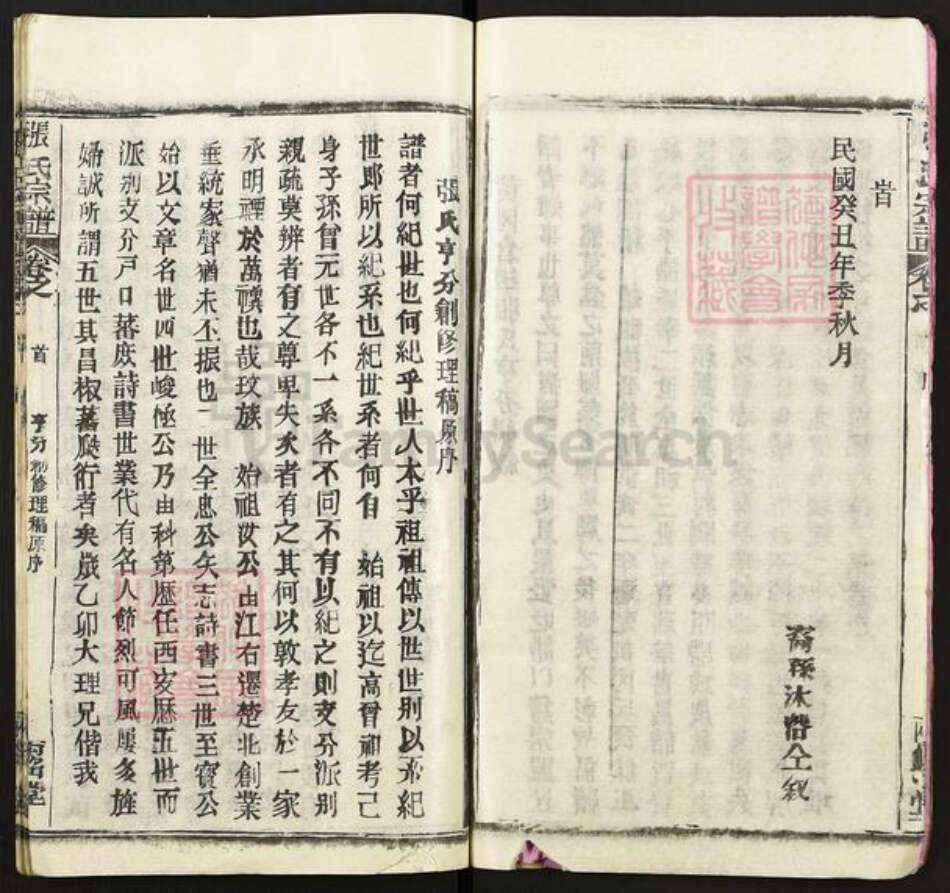 旹
民國癸丑年季秋月
裔孫沐
仝叙
張氏亨分創修理稿原序
譜者何紀世也何紀乎世人本乎祖祖傳以世世别以系紀
世郎所以紀系也紀世系者何自 始祖以迄高曾祖考己
身子孫曾元世各不一系各不同不有以紀之則支分派别
親疏莫辨者有之尊卑失次者有之其何以敦孝友於一家
承明禋於萬禩也哉玟族 始祖汝公由江右遷楚北創業
垂統家聲猶未丕振也二世全忠公矢志詩書三世至寳公
始以文章名世四世峻極公乃由科第歷任西安歷五世而
派别支分戸口蕃庶詩書世業代有名人節烈可風屢多旌
婦誠所謂五世其昌椒蕃瓞衍者矣歲乙卯大理兄偕我
張氏宗譜
卷之
首
亨分創修理稿原序
FamilySearch